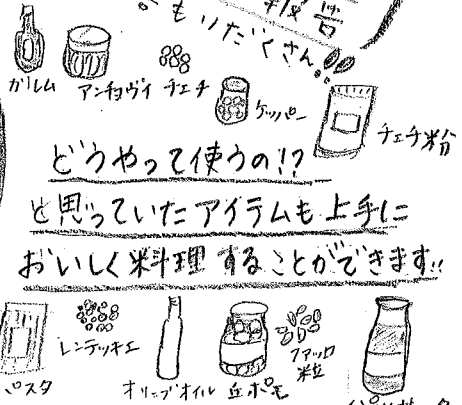 もりだくさん!!
ガルム
アンチョヴィ
チェチ
ケッパー
チェチ粉
どうやって使うの!?
と思っていたアイテムも上手に
おいしく料理することができます!!
レンティッキエ
パスタ
オリーブオイル
ファッロ
粒